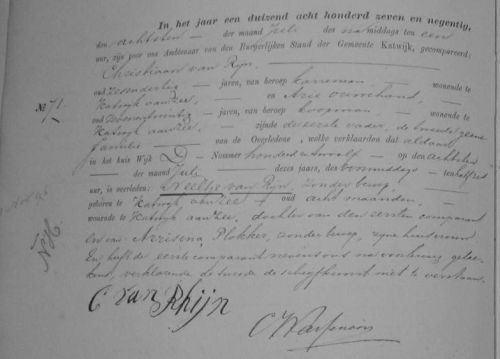 In het jaar een duizend acht honderd zeven en negentig,
den achtsten der maand Juli des namiddags ten een
uur, zijn voor ons Ambtenaar van den Burgerlijken Stand der Gemeente Katwijk, gecompareerd:
Christiaan van Rijn,
oud jaren, van beroep wonende te
Katwijk aan Zee, en Arie Ouwehand,
oud jaren, van beroep koopman wonende te
No. 71. Katwijk aan Zee, zijnde de eerste vader, de tweede geene
familie van de Overledene, welke verklaarden dat aldaar
in het huis Wijk D Nommer honderd twaalf op den achtsten
der maand Juli dezes jaars, des voormiddags ten half
uur, is overleden: Neeltje van Rijn, zonder beroep,
geboren te Katwijk aan Zee oud acht maanden,
wonende te Katwijk aan Zee, dochter van den eersten comparant
en van Plokker, zonder beroep, zijne huisvrouw
En heeft de eerste comparant nevens ons na voorlezing getee-
kend, verklarende de tweede de schrijfkunst niet te verstaan.
NH
C van Rhijn